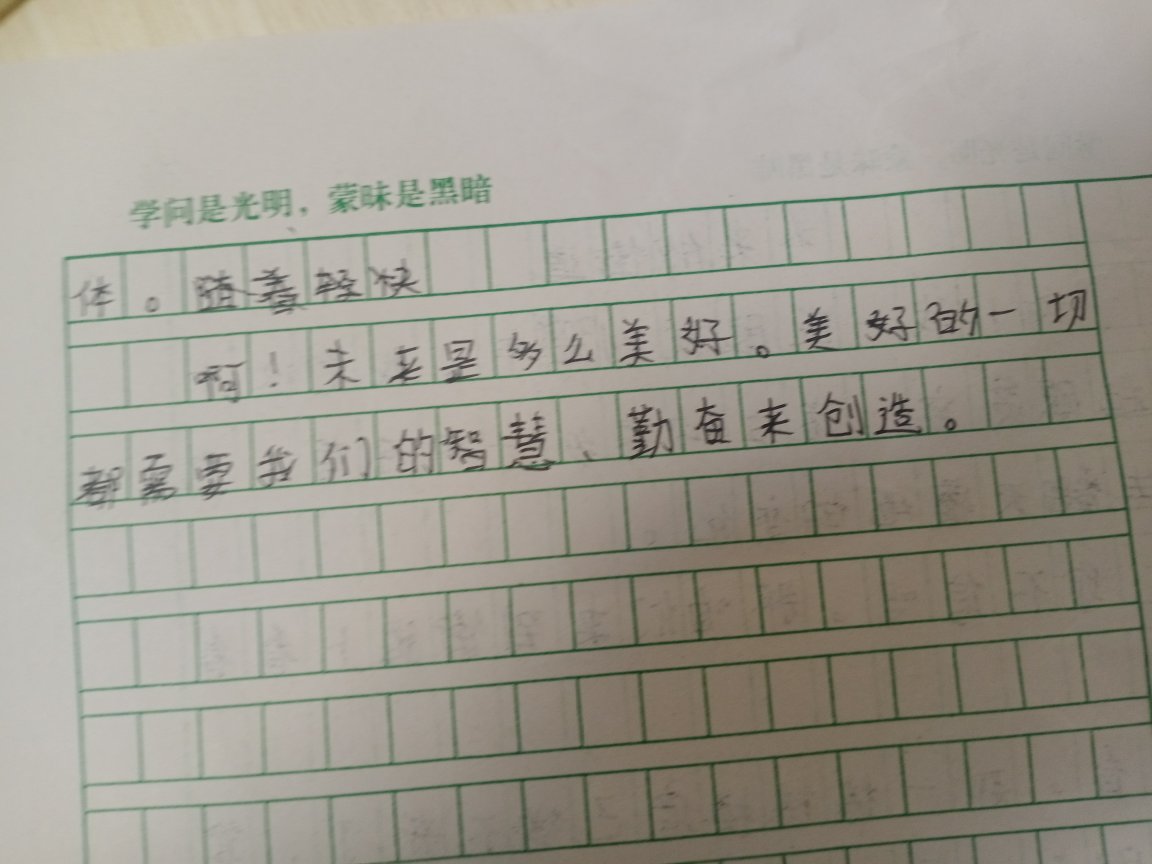 学问是光明，蒙昧是黑暗
体。随着轻快
啊！未来是多么美好。美好的一切
都需要我们的智慧、勤奋来创造。